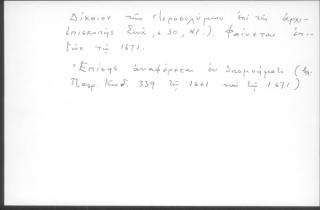 Δίκαιον τῶν Ἱεροσολύμων ἐπὶ τῆς ἀρχι-
επισκοπῆς Σινᾶ, σ. 30, 41.). Φαίνεται ἐπι-
ζῶν τῷ 1671.
Ἐπίσης ἀναφέρεται ἐν ὑπομνήματι (
Πατρ. Κωδ. 339 τῷ 1661 καὶ τῷ 1671)